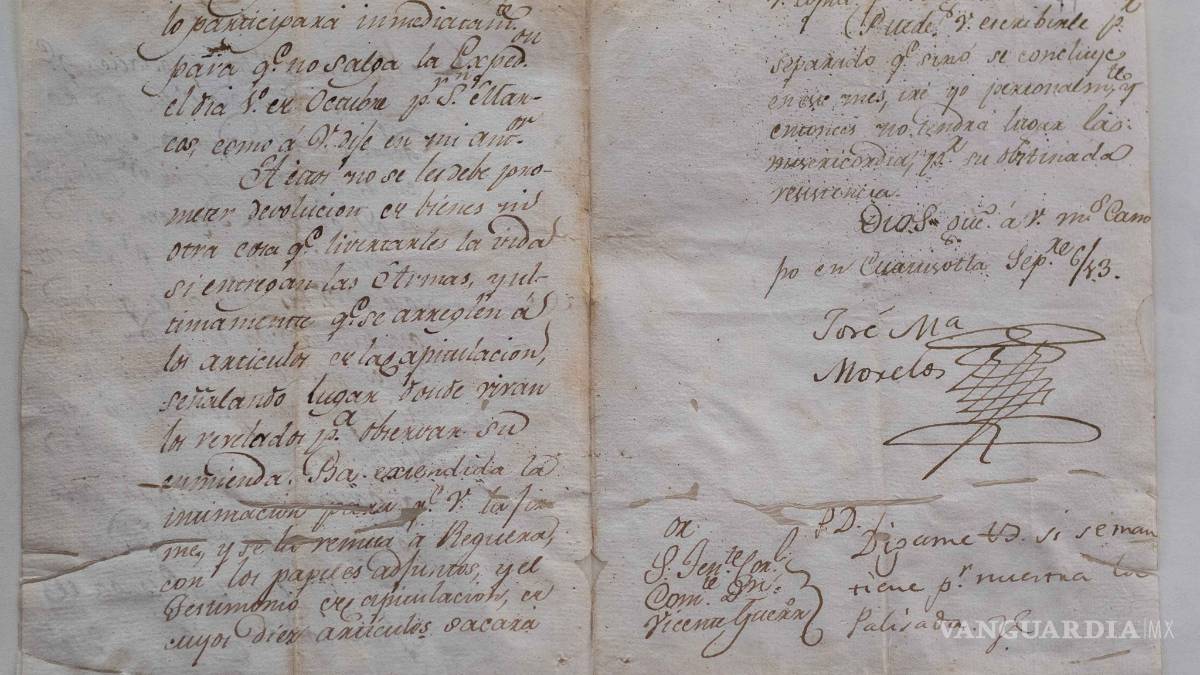 lo participará inmediatamte.
para qe. no salga la Expedon.
el dia 1o. de Octubre pr. Sn. Mar-
cos, como á V. dije en mi antor.
A ecos no se les debe pro-
meter devolucion de bienes ni
otra cosa qe. livertarles la vida
si entregan las Armas, y ul-
timamente qe. se arreglen á
los articulos de la Capitulacion,
señalando lugar donde vivan
los revelados pa. observar su
enmienda. Ba. extendida la
intimacion para qe. V. la fir
me, y se la remita á Reguera,
con los papeles adjuntos, y el
Testimonio de capitulacion, de
cuyos diez articulos sacará
Puede V. escribirle pr.
separado qe. sinó se concluye
en este mes, iré yo personalmte. y
entonces no tendrá lugar la
misericordia, pr. su obstinada
resistencia.
Dios gue. á V. ms. as. Cam
po en Sepre. 6/813.
José Ma
Morelos
P.D.
Digame V. si se man
tiene pr. nuestra la
Palizada
or
S. Tente. Corl.
Comte. Dn.
Vicente Guerro
VANGUARDIA|MX